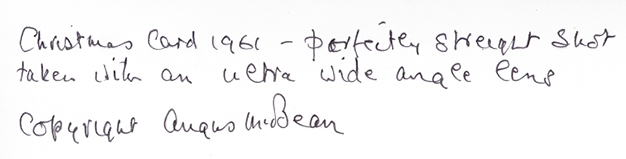 Christmas Card 1961 - perfectly straight shot
taken with an ultra wide angle lens
Copyright Angus McBean